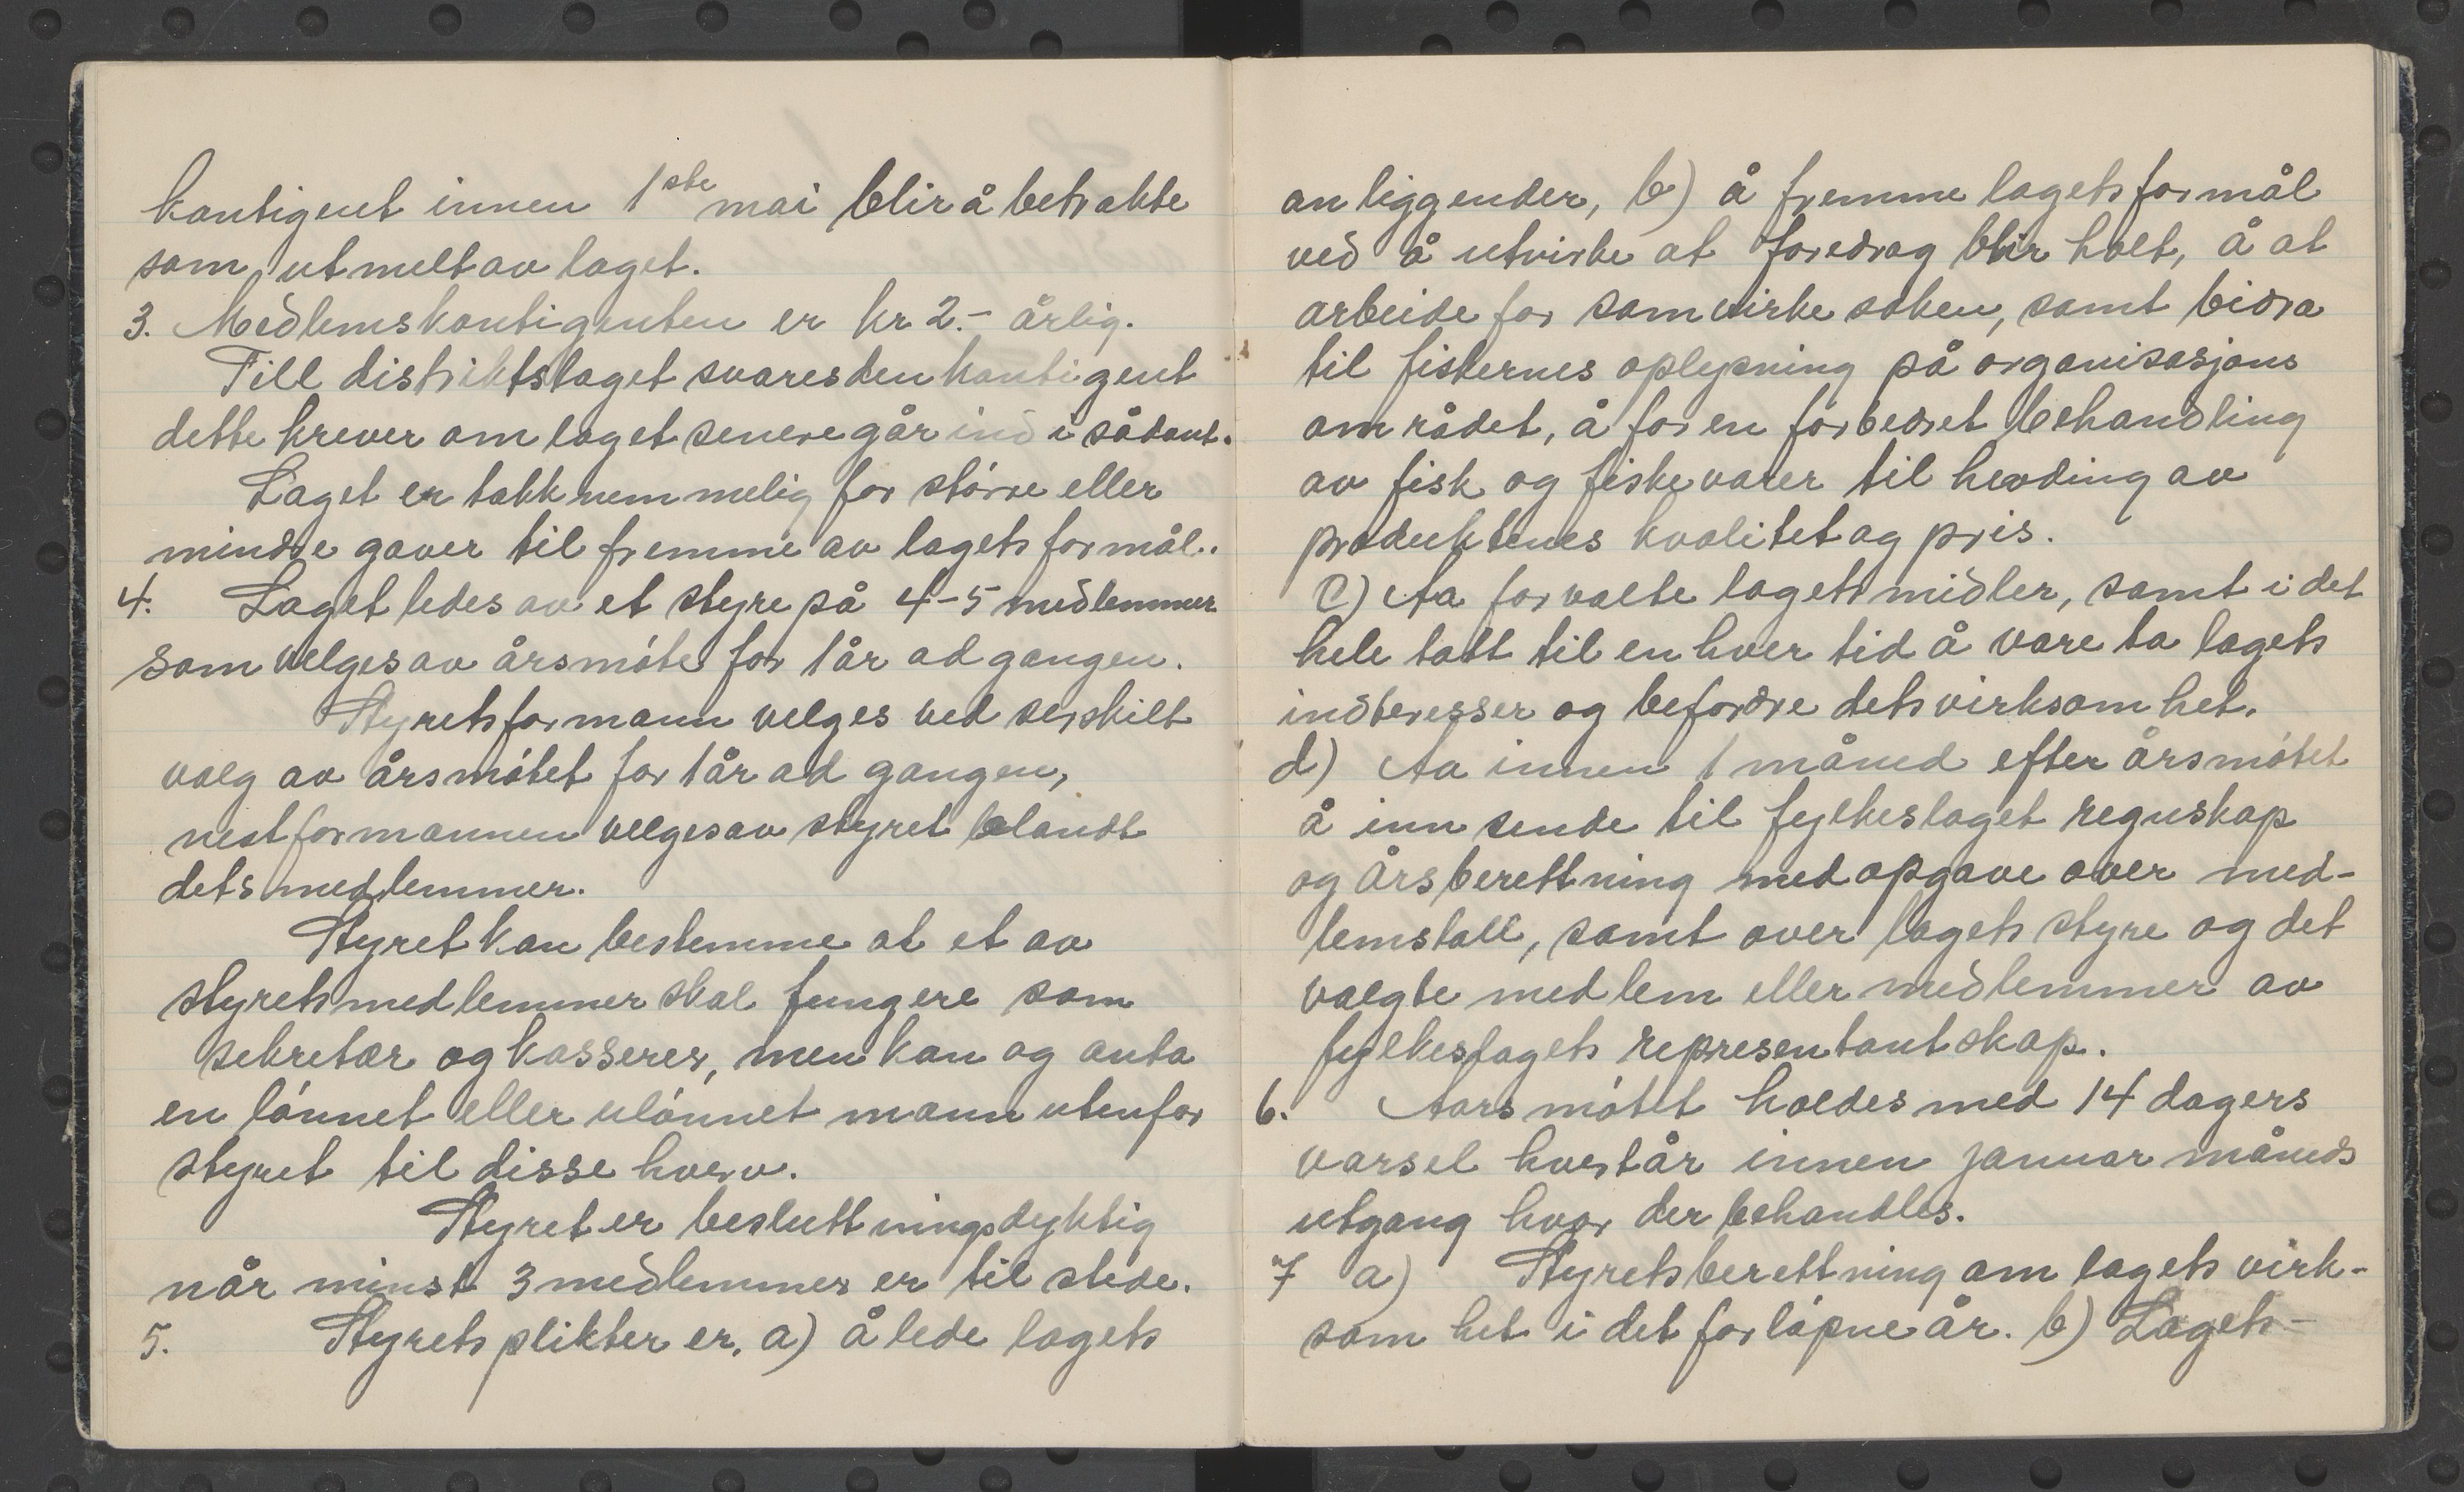 kontigent innen 1ste mai blir å betrakte
som utmelt av laget.
3. Medlemskontigenten er kr 2.- årlig.
Till distriktslaget svares den kontigent
dette krever om laget senere går ind i sådant.
Laget er takknemmelig for större eller
mindre gaver til fremme av lagets formål.
4. Laget ledes av et styre på 4-5 medlemmer
som velges av årsmöte for 1 år ad gangen.
Styrets formann velges ved serskilt
valg av årsmötet for 1 år ad gangen,
nestformannen velges av styret blandt
dets medlemmer.
Styret kan bestemme at et av
styrets medlemmer skal fungere som
sekretær og kasserer, men kan og anta
en lönnet eller ulönnet mann utenfor
styret til disse hverv.
Styret er besluttningsdyktig
når minst 3 medlemmer er til stede.
5. Styrets plikter er, a) å lede lagets
anliggender, b) å fremme lagets formål
ved å utvirke at foredrag blir holt, å at
arbeide for samvirke saken, samt bidra
til fiskernes oplysning på organisasjons
området, å for en forbedret behandling
av fisk og fiskevarer til hevding av
produktenes kvalitet og pris.
C) Aa forvalte lagets midler, samt i det
hele tatt til en hver tid å vare ta lagets
indteresser og befordre dets virksomhet.
d) Aa innen 1 måned efter årsmötet
å innsende til fylkeslaget regnskap
og årsberettning med opgave over med-
lemstall, samt over lagets styre og det
valgte medlem eller medlemmer av
fylkeslagets representantskap.
6. Aarsmötet holdes med 14 dagers
varsel hvert år innen januar måneds
utgang hvor der behandles.
7 a) Styrets berettning om lagets virk-
som het i det forlöpne år. b) Lagets-